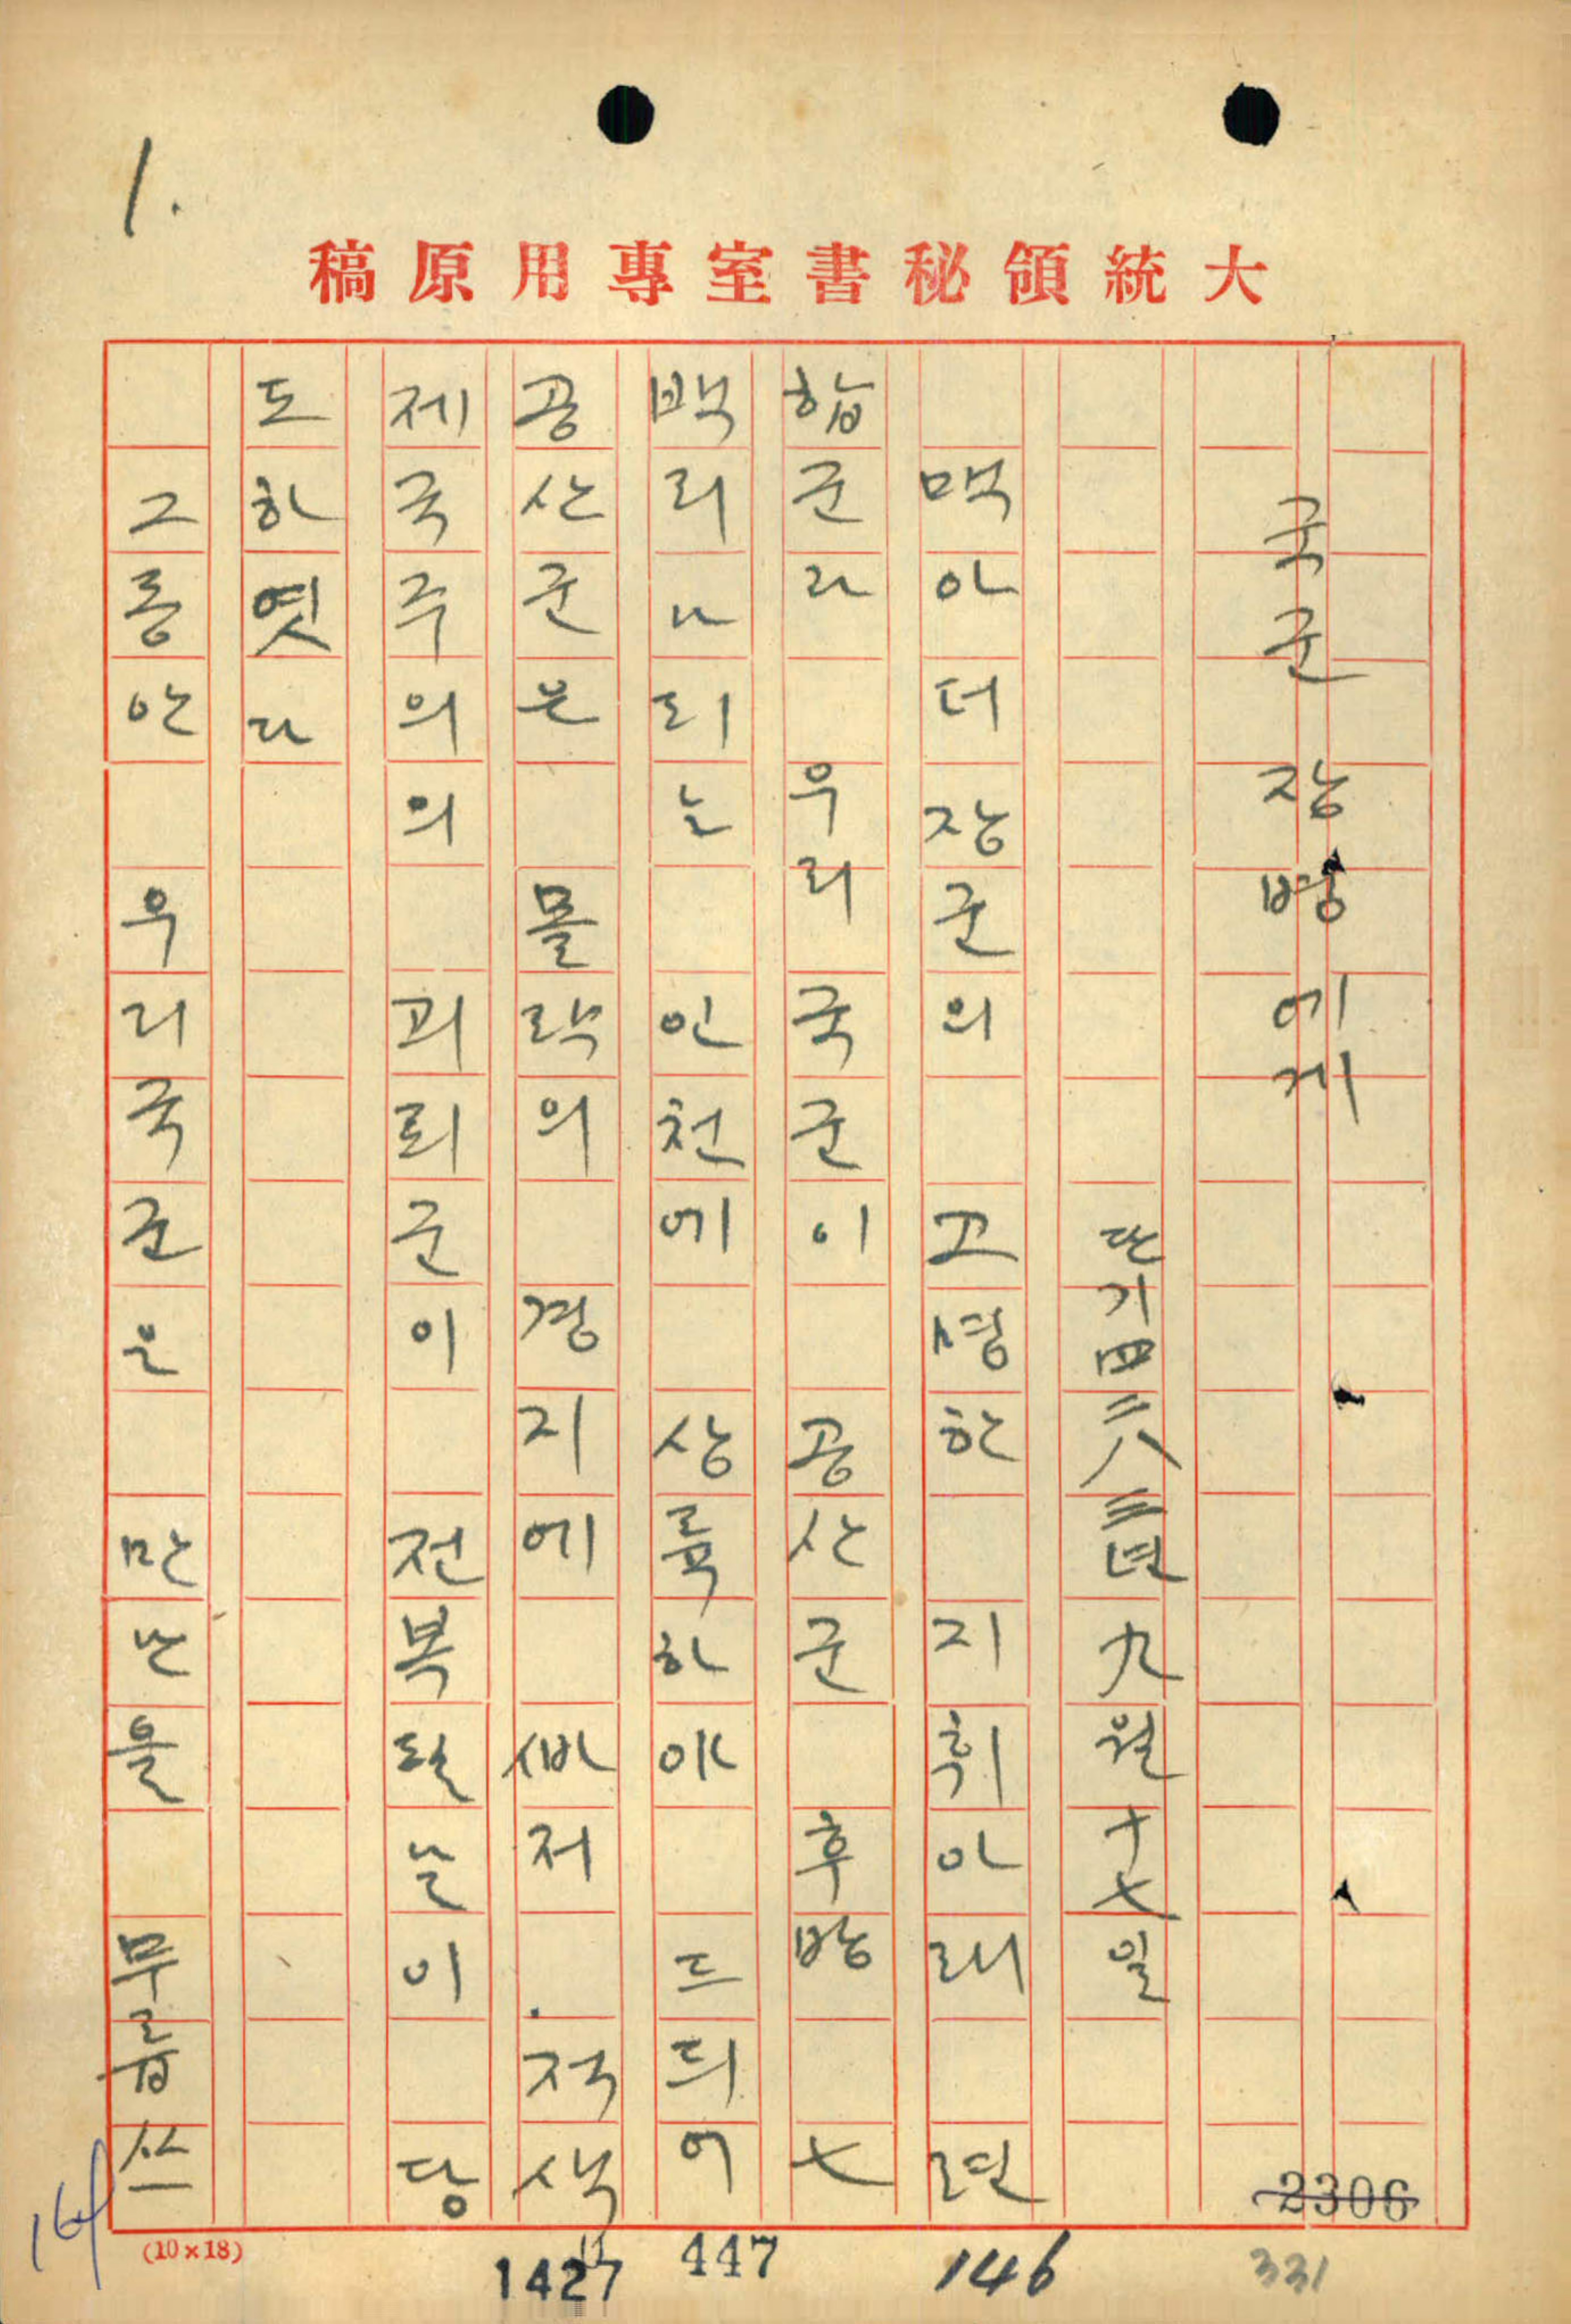 1.
大統領秘書室專用原稿
국군 장병에게
단기四二八三년九월十七일
맥아더장군의 고명한 지휘아래 련
합군과 우리국군이 공산군 후방 七
백리나되는 인천에 상륙하야 드듸어
공산군은 몰락의 경지에 빠저. 적색
제국주의의 괴뢰군이 전복될날이 당
도하엿다
그동안 우리국군은 만난을 무릅쓰
(10×18)
2306
1427
447
146
331